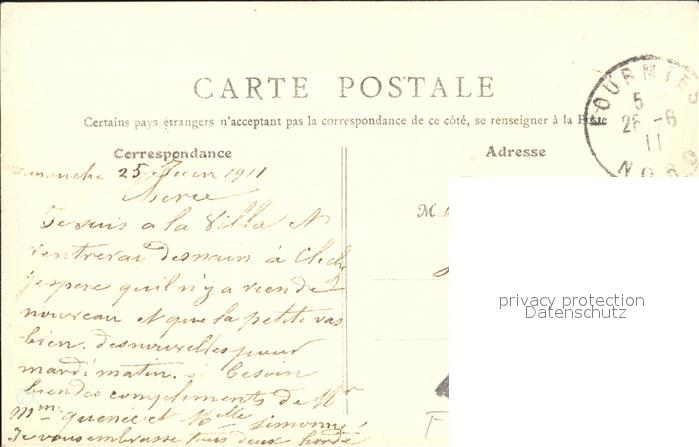 CARTE POSTALE
Certains pays étrangers n'acceptant pas la correspondance de ce côté, se renseigner à la Poste
FOURMIES
5
26 - 6
11
NORD
Correspondance
Adresse
Dimanche 25 Juin 1911
M
Je suis a la Villa et
rentrerai demain à Clichy
j'espere qu'il n'y a rien de
nouveau et que la petite vas
bien. des nouvelles pour
mardi matin. si besoin
bien des compliments de Mr
Mme et Melle Simonne
Je vous embrasse tous deux
privacy protection
Datenschutz
F